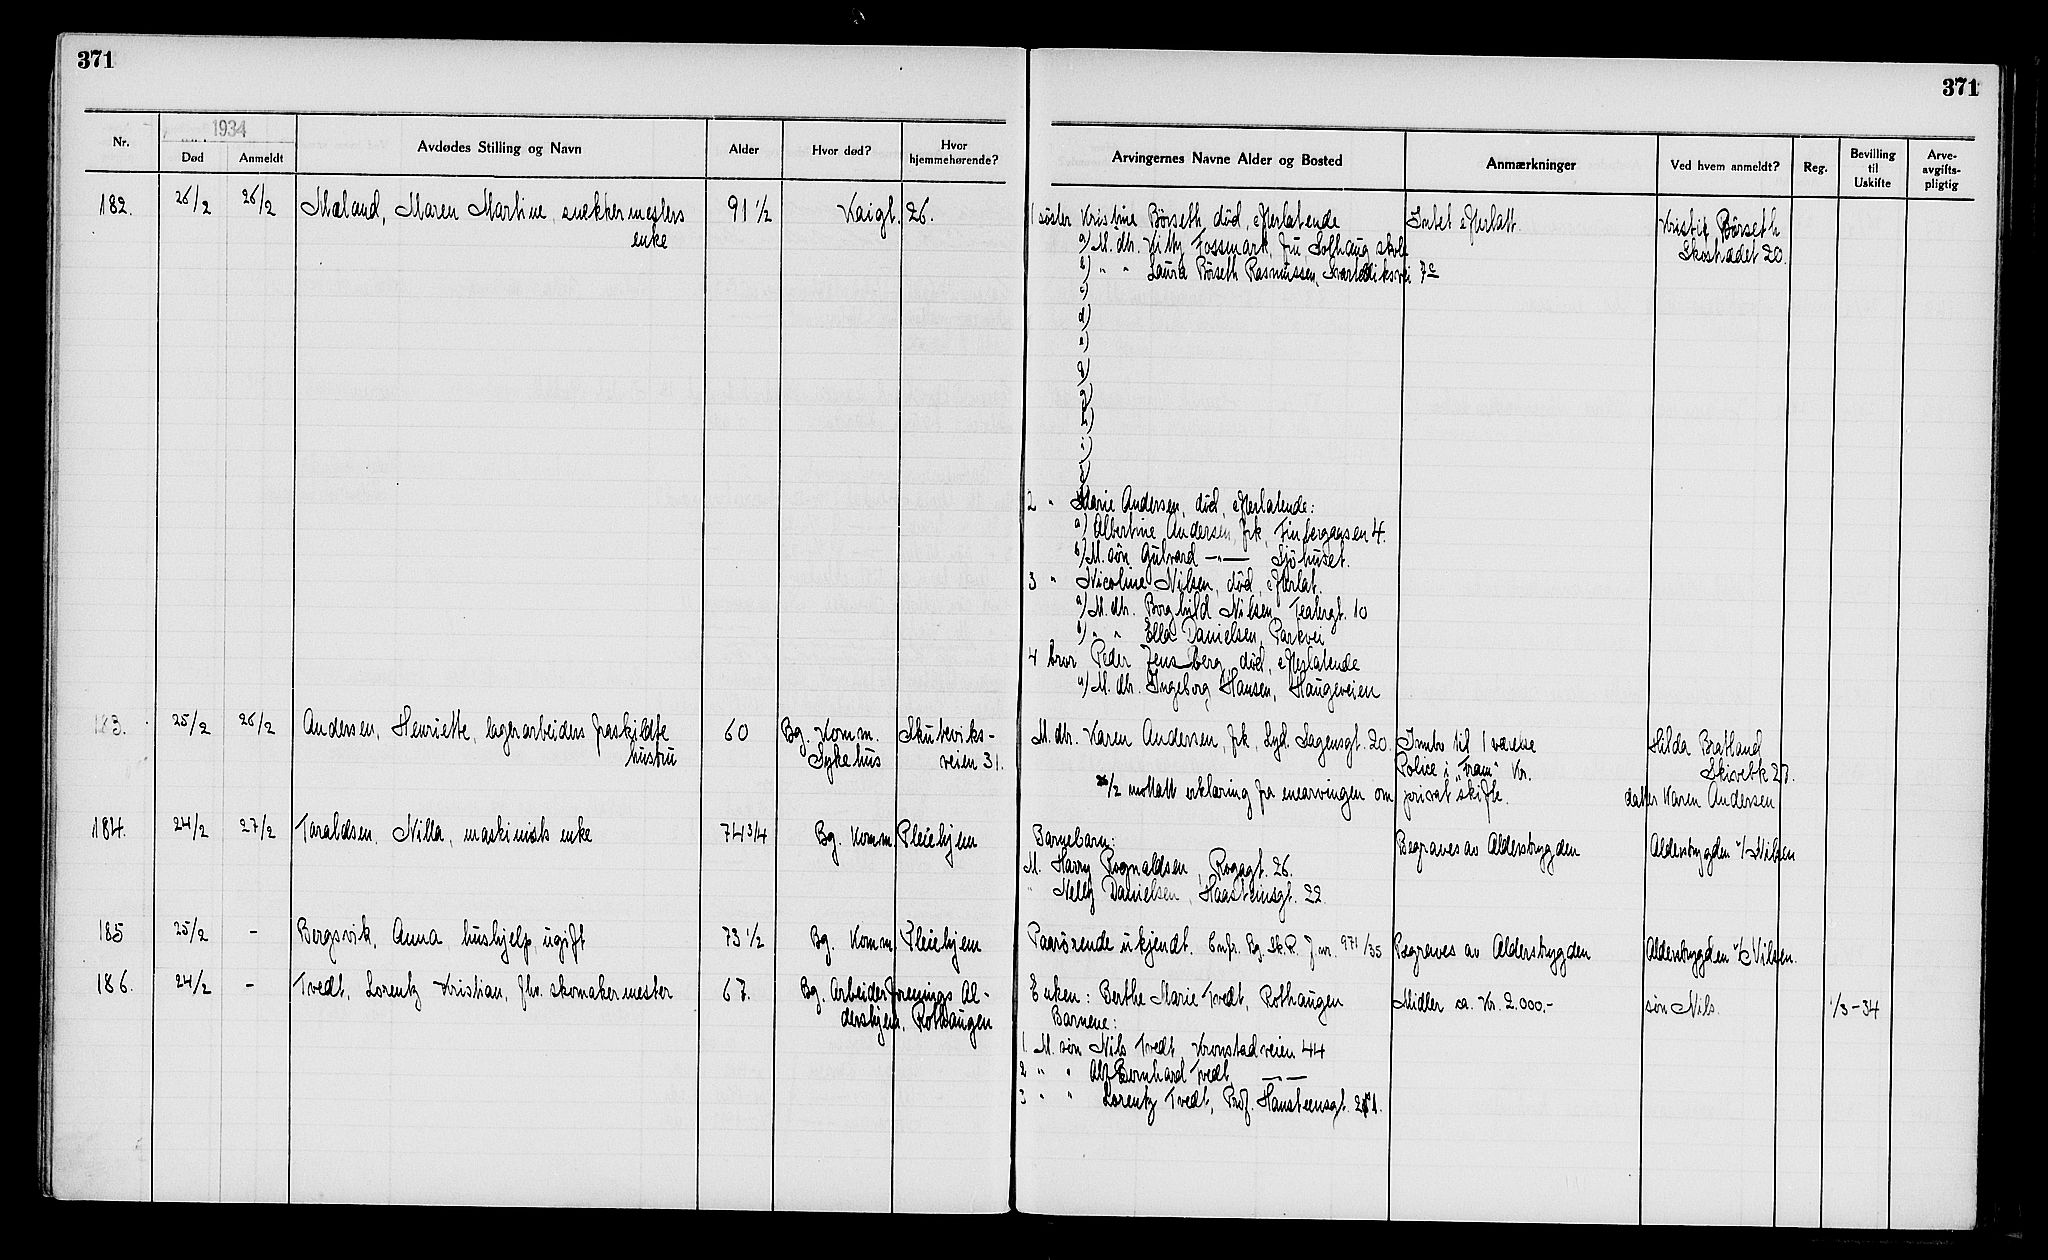 371
371
Nr.
1934
Død
Anmeldt
Avdødes Stilling og Navn
Alder
Hvor død?
Hvor hjemmehørende?
Arvingernes Navne Alder og Bosted
Anmærkninger
Ved hvem anmeldt?
Reg.
Bevilling til Uskifte
Arve-avgifts-pligtig
182. 26/2 26/2 Mæland, Maren Martine, snekkermesters 91 1/2 Kaigt. 26.
enke
1 søster Kristine Børseth, død, efterlatende Intet efterlatt Børseth
a) M. dtr. Fossmark, fru Solhaug skole 20.
b) " " Laura Børseth Rasmussen, 7c
c)
d)
e)
f)
g)
h)
i)
2 " Marie Andersen, død, efterlatende:
a) Albertine Andersen, frk, 4.
b) M. søn —"— Sjøhuset.
3 " Nicoline Nilsen, død, efterlat.
a) M. dtr. Borghild Nilsen, Teatergt. 10
b) " " Ella Danielsen, Parkvei
4 bror Peder Jensberg, død, efterlatende
a) M. dtr. Ingeborg Hansen, Haugeveien
183. 25/2 26/2 Andersen, Henriette, lagerarbeiders fraskildte 60 Bg. Komm. Skuteviks-
hustru Sykehus veien 31.
M. dtr. Karen Andersen, frk, Lyd. Sagensgt. 20. Innbo til 1 værelse Hilda Bratland
Police i "Fram" Kr. 27.
26/2 mottatt erklæring fra enearvingen om privat skifte. datter Karen Andersen
184. 24/2 27/2 Taraldsen, Nilla, maskinists enke 74 3/4 Bg. Komm. Pleiehjem
Barnebarn: Begraves av Alderstrygden Alderstrygden v/ Nilsen
M. Harry Rognaldsen, 26.
" Nelly Danielsen, Haasteinsgt. 22
185 25/2 - Bergsvik, Anna, hushjelp, ugift 73 1/2 Bg. Komm. Pleiehjem
Paarørende ukjendt. Bg. Sk.R. J.nr. 971/35 Begraves av Alderstrygden Alderstrygden v/ Nilsen.
186. 24/2 - Tvedt, Lorentz Kristian, fhv. skomakermester 67. Bg. Arbeiderforenings Al-
dershjem, Rothaugen
Enken: Berthe Marie Tvedt, Rothaugen Midler ca. Kr. 2.000.- søn Nils. 1/3-34
Barnene:
1. M. søn Nils Tvedt, Kronstadveien 44
2 " " Alf Bernhard Tvedt, —"—
3 " " Lorentz Tvedt, Prof. Hansteensgt.